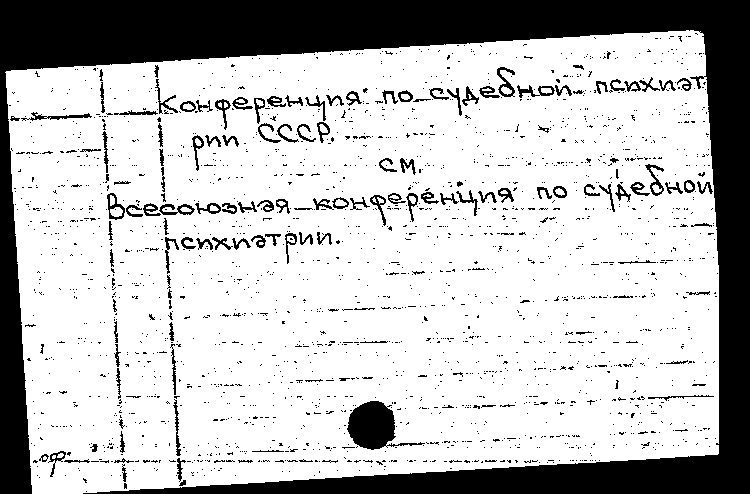 Конференция по судебной психиат
рии СССР.
см.
Всесоюзная конференция по судебной
психиатрии.
оф.